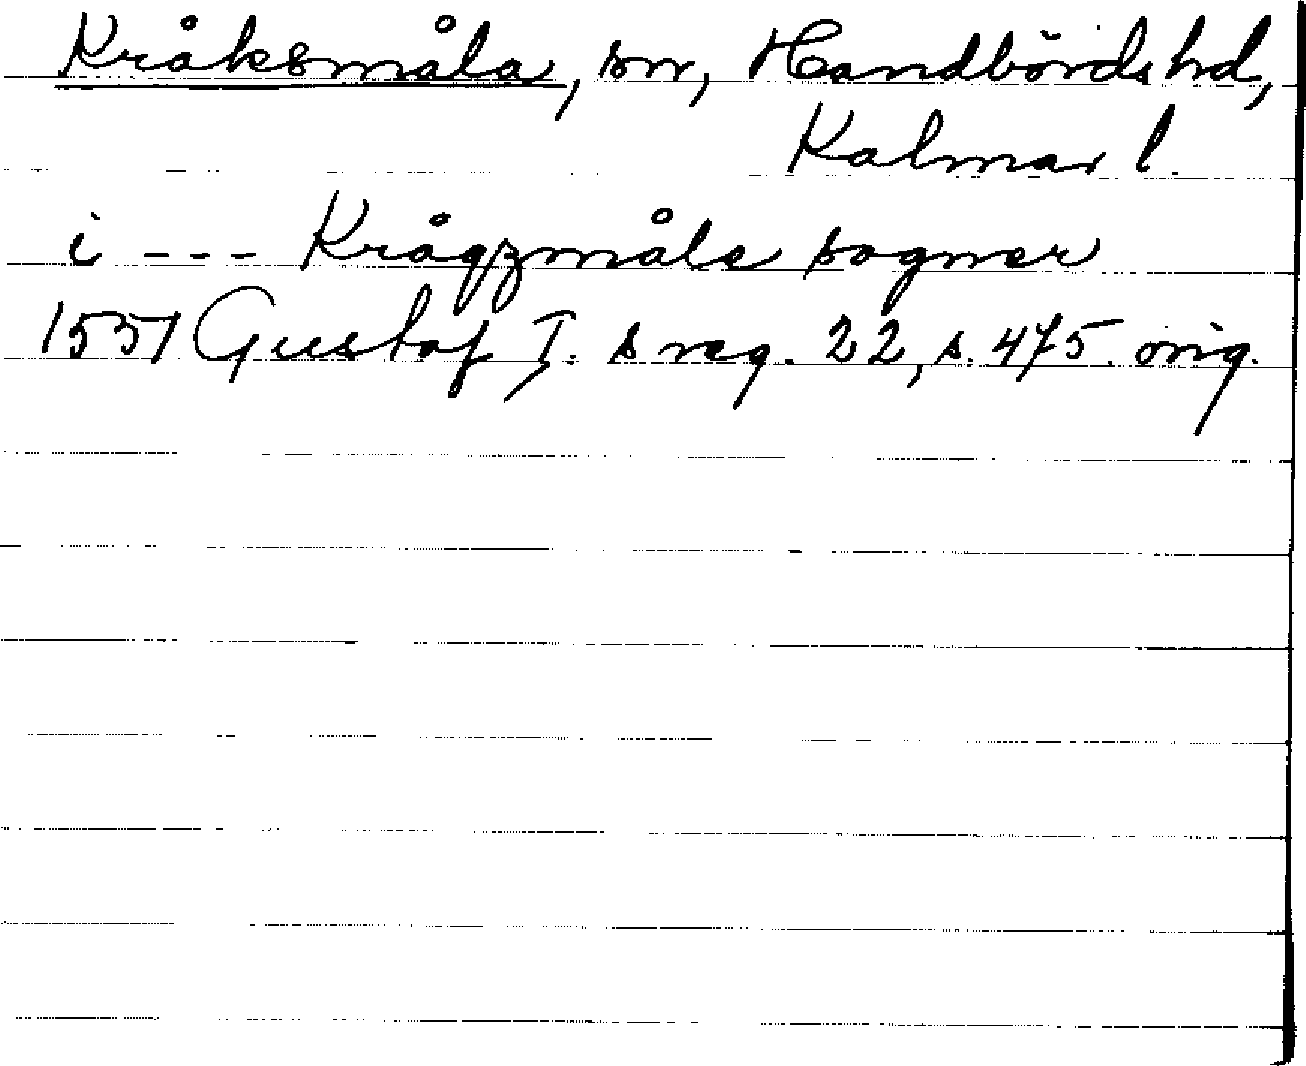 Kråksmåla, sn, Handbörds hd,
Kalmar l.
i --- Krågzmåla sogner
1551 Gustaf I. s reg. 22, s. 475. orig.